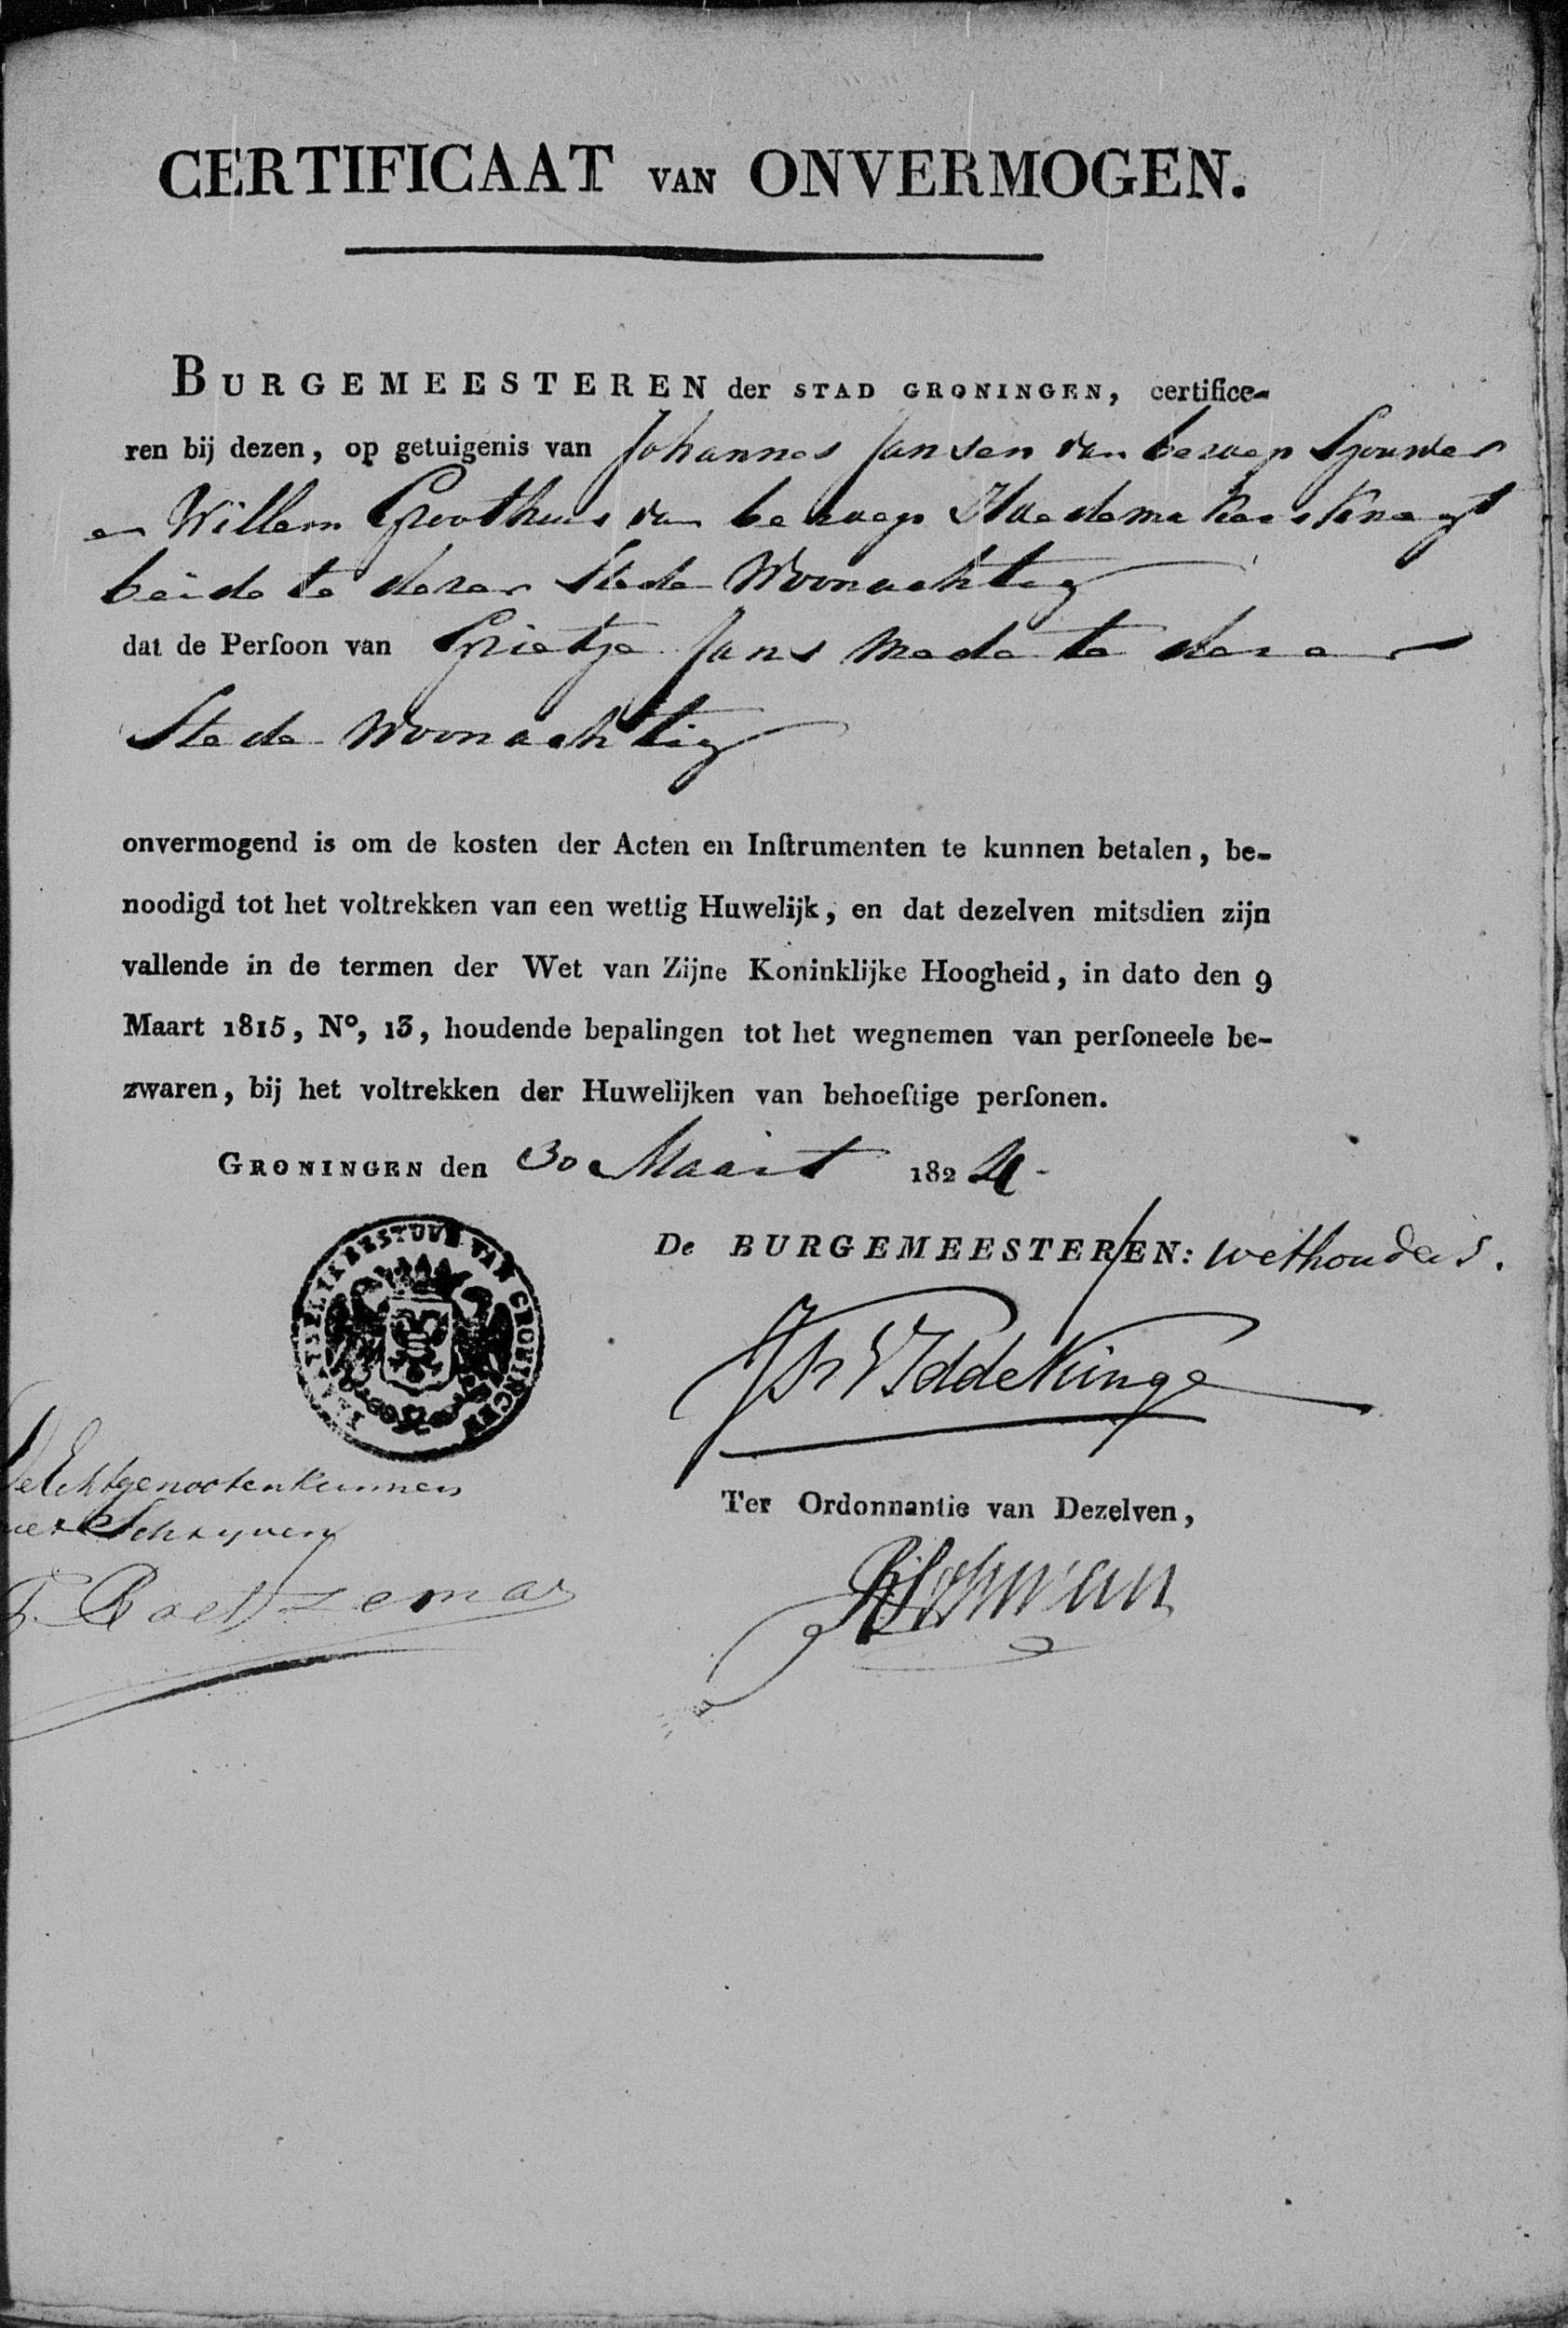 CERTIFICAAT VAN ONVERMOGEN.
BURGEMEESTEREN der STAD GRONINGEN, certifice-
ren bij dezen, op getuigenis van Johannes Jansen van beroep Sjouwer
en Willem Groothuis van beroep Hoedemakers Knegt
beide te dezer Stede Woonachtig
dat de Perſoon van Grietje Jans mede te dezer
Stede Woonachtig
onvermogend is om de kosten der Acten en Inſtrumenten te kunnen betalen, be-
noodigd tot het voltrekken van een wettig Huwelijk, en dat dezelven mitsdien zijn
vallende in de termen der Wet van Zijne Koninklijke Hoogheid, in dato den 9
Maart 1815, N°, 13, houdende bepalingen tot het wegnemen van perſoneele be-
zwaren, bij het voltrekken der Huwelijken van behoeftige perſonen.
GRONINGEN den 30 Maart 1824-
De BURGEMEESTEREN: wethouders.
BESTUUR VAN GRONINGEN
V Iddekinge
De Echtgenooten kunnen
niet Schryven
Ter Ordonnantie van Dezelven,
Lohman